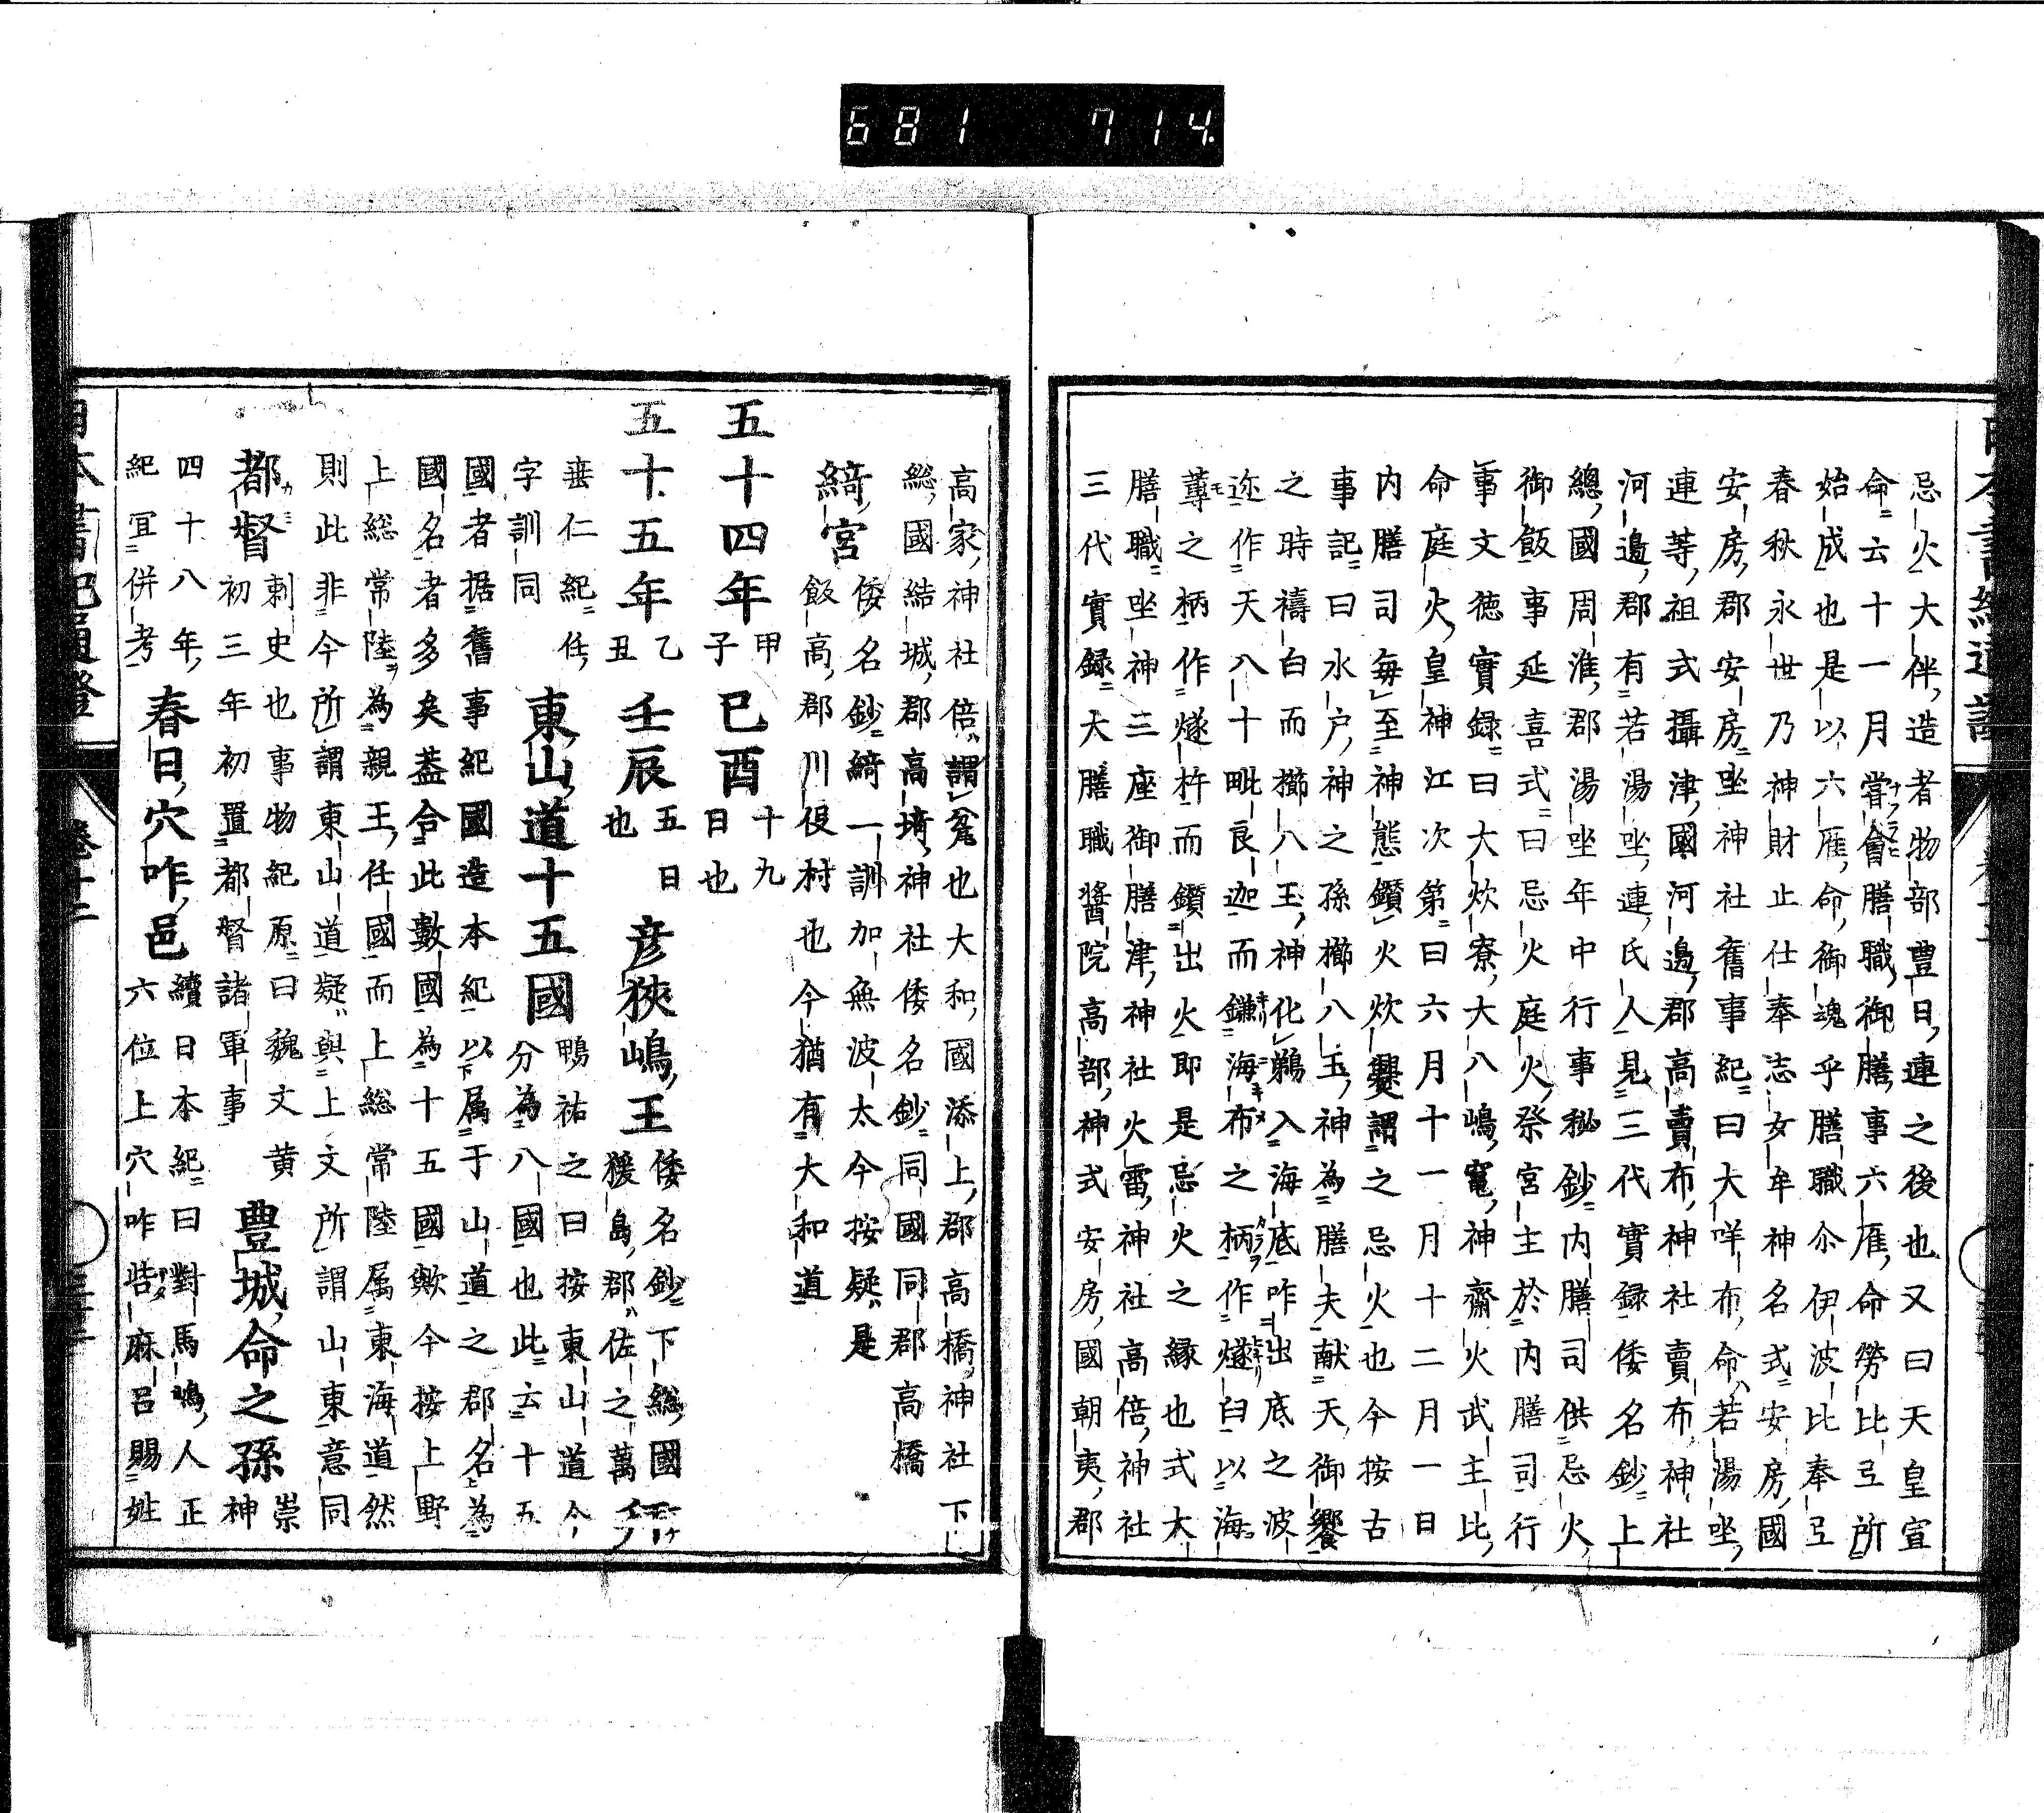 681 714
忌火大伴造者物部豊日連之後也又曰天皇宣
命云十一月嘗會膳職御膳事六雁命勞比弖所
始成也是以六雁命御魂乎膳職尒伊波比奉弖
春秋永世乃神財止仕奉志女牟神名式安房國
安房郡安房坐神社舊事紀曰大咩布命若湯坐
連等祖式攝津國河邊郡高賣布神社賣布神社
河邊郡有若湯坐連氏人見三代實録倭名鈔上
總國周淮郡湯坐年中行事秘鈔内膳司供忌火
御飯事延喜式曰忌火庭火祭宮主於内膳司行
事文徳實録曰大炊寮大八嶋竃神齋火武主比
命庭火皇神江次第曰六月十一月十二月一日
内膳司毎至神態鑽火炊爨謂之忌火也今按古
事記曰水戸神之孫櫛八玉神為膳夫献天御饗
之時禱白而櫛八玉神化鵜入海底咋出底之波
迩作天八十毗良迦而鎌海布之柄作燧臼以海
蓴之柄作燧杵而鑽出火即是忌火之縁也式大
膳職坐神三座御膳津神社火雷神社高倍神社
三代實録大膳職醬院高部神式安房國朝夷郡
高家神社倍謂瓮也大和國添上郡高橋神社下
総國結城郡高埼神社倭名鈔同國同郡高橋
綺宮 倭名鈔綺一訓加無波太今按疑是
飯高郡川俣村也今猶有大和道
五十四年 甲子 己酉 十九日也
五十五年 乙丑 壬辰 五日也 彦狹嶋王 倭名鈔下総國
猨島郡佐之萬
垂仁紀任 東山道十五國 鴨祐之曰按東山道今
字訓同 分為八國也此云十五
國者据舊事紀國造本紀以下属于山道之郡名為
國名者多矣葢合此數國為十五國歟今按上野
上総常陸為親王任國而上総常陸属東海道然
則此非今所謂東山道疑與上文所謂山東意同
都督 刺史也事物紀原曰魏文黄
初三年初置都督諸軍事 豊城命之孫 崇神
四十八年
紀冝併考 春日穴咋邑 續日本紀曰對馬嶋人正
六位上穴咋呰麻呂賜姓